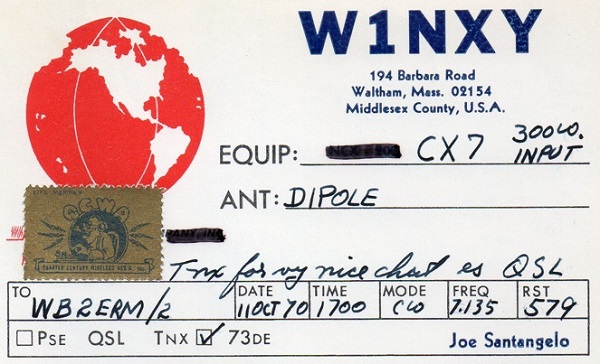 W1NXY
194 Barbara Road
Waltham, Mass. 02154
Middlesex County, U.S.A.
EQUIP: CX7 300W. INPUT
ANT: DIPOLE
QCWA
QUARTER CENTURY WIRELESS ASS'N. INC.
Tnx for vy nice chat es QSL
TO DATE TIME MODE FREQ RST
WB2ERM/2 11 OCT 70 1700 CW 7.135 579
PSE QSL TNX ☑ 73 DE Joe Santangelo